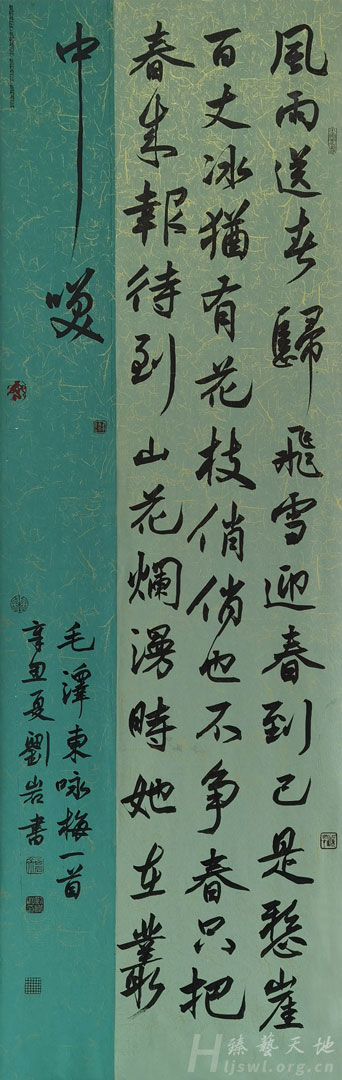 風雨送春歸飛雪迎春到已是懸崖
百丈冰猶有花枝俏俏也不争春只把
春来報待到山花爛漫時她在叢
中咲
毛澤東咏梅一首
辛丑夏劉岩書
臻藝天地
Hljswl.org.cn